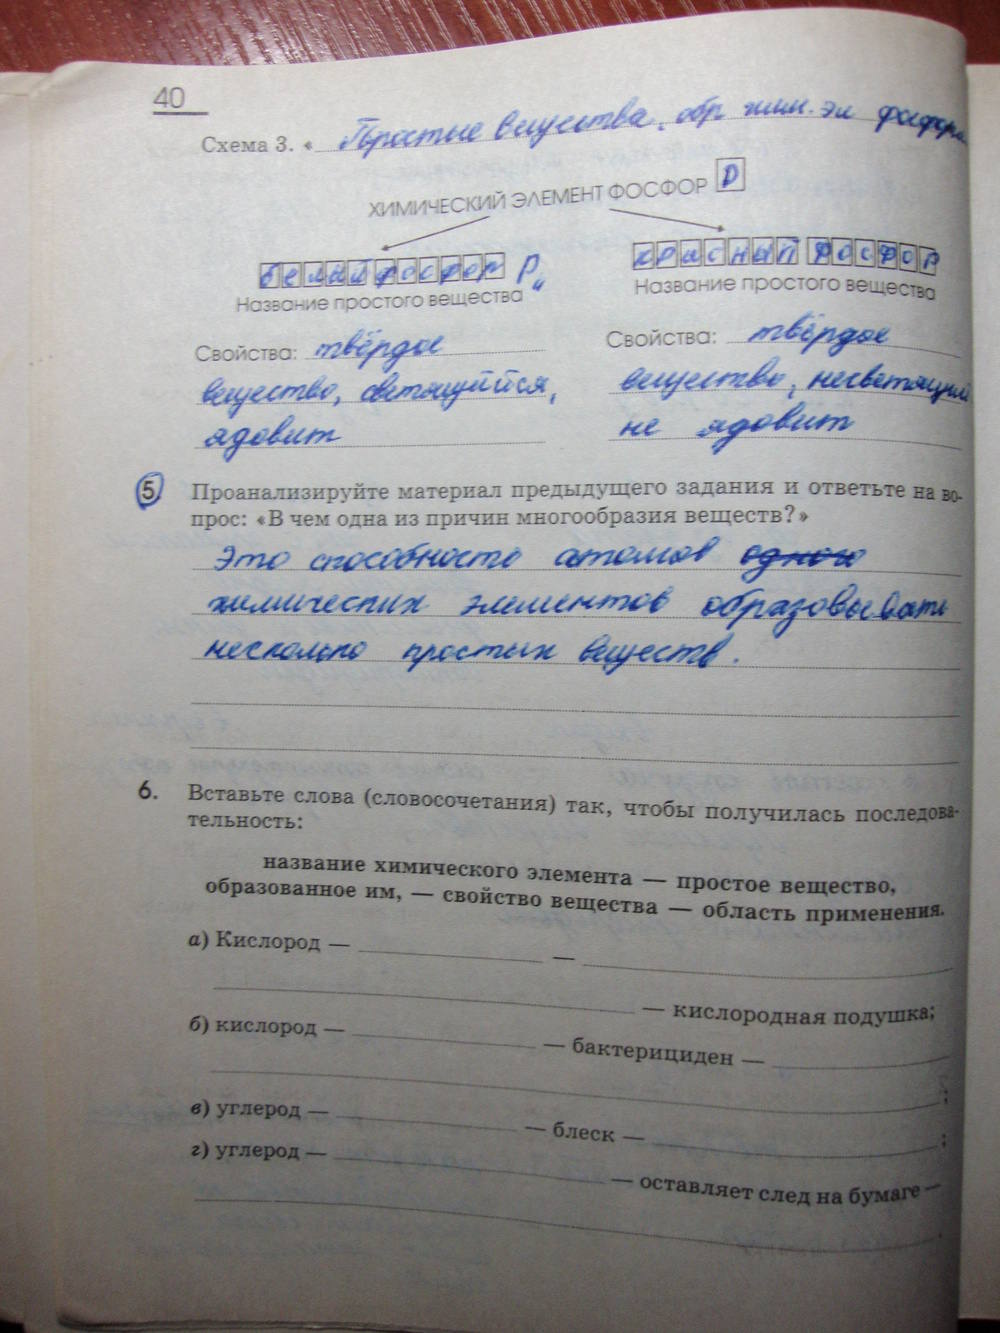 40
Схема 3. « Простые вещества, обр хим. эл фосфора
ХИМИЧЕСКИЙ ЭЛЕМЕНТ ФОСФОР P
белый фосфор P4 красный фосфор
Название простого вещества Название простого вещества
Свойства: твёрдое Свойства: твёрдое
вещество, светящийся, вещество, несветящий
ядовит не ядовит
5. Проанализируйте материал предыдущего задания и ответьте на во-
прос: «В чем одна из причин многообразия веществ?»
Это способность атомов одного
химических элементов образовывать
несколько простых веществ.
6. Вставьте слова (словосочетания) так, чтобы получилась последова-
тельность:
название химического элемента — простое вещество,
образованное им, — свойство вещества — область применения.
а) Кислород — —
— кислородная подушка;
б) кислород — — бактерициден —
;
в) углерод — — блеск — ;
г) углерод — — оставляет след на бумаге —
.